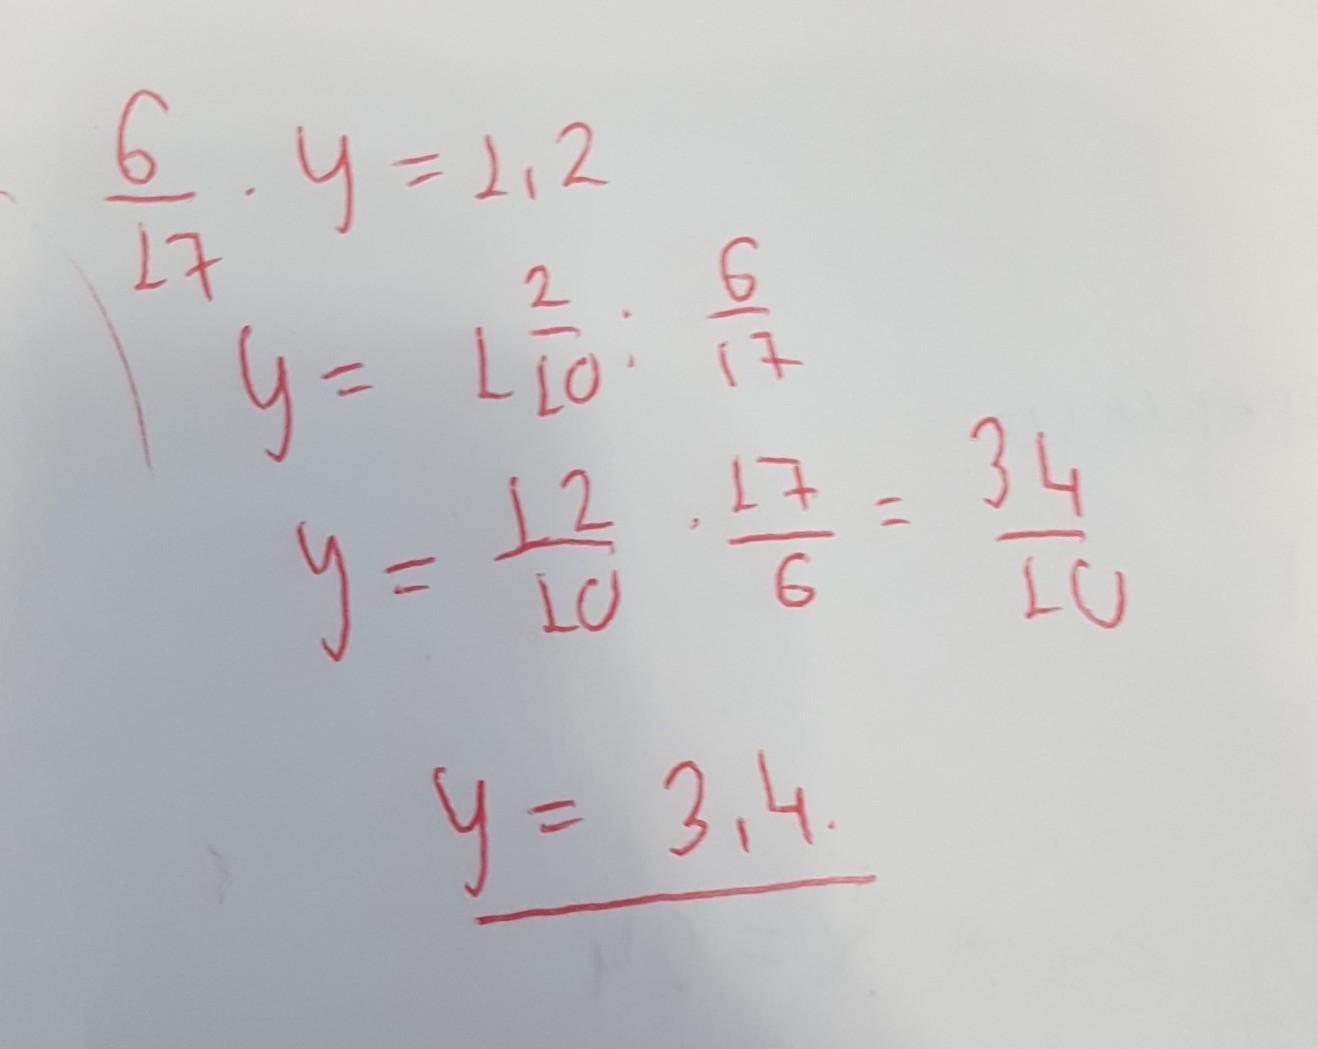 6/17 · y = 1,2
y = 1 2/10 : 6/17
y = 12/10 · 17/6 = 34/10
y = 3,4.